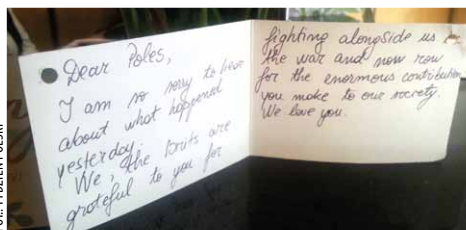 Dear Poles,
I am so sorry to hear
about what happened
yesterday.
We, the Brits are
grateful to you for
fighting alongside us
the war and now
for the enormous contribution
you make to our society.
We love you.
TYDZIEŃ POLSKI